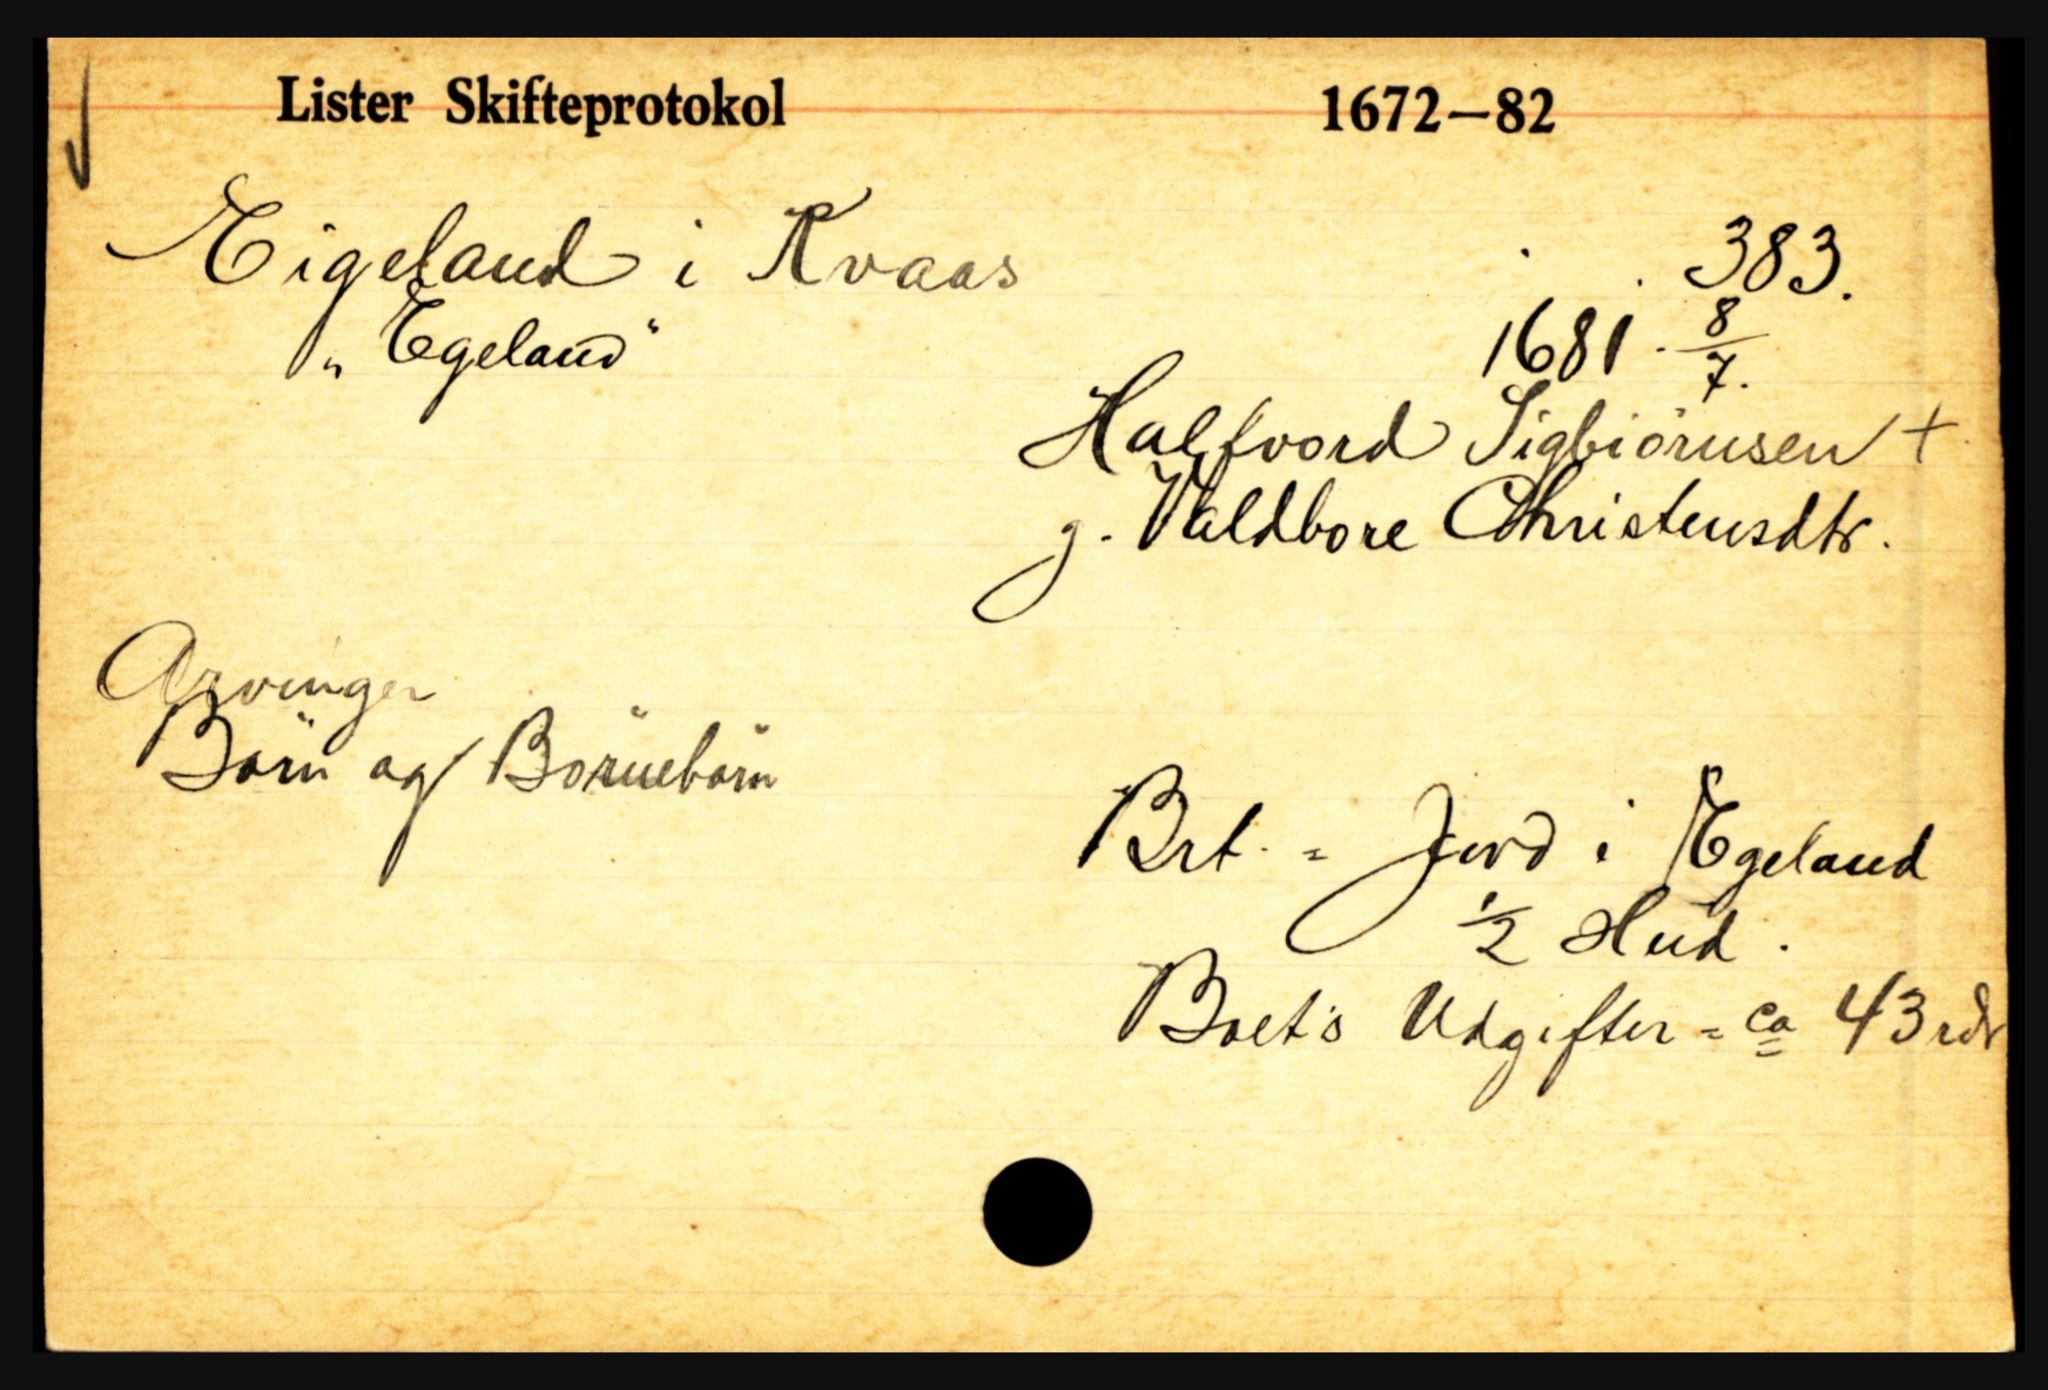 Lister Skifteprotokol 1672—82
Eigeland i Kvaas 383.
„Egeland" 1681. 8/7.
Halfvord Sigbiörnsen +
g. Valdbore Christensdtr.
Arvinger
Börn og Börnebörn
Brt. = Jord i Egeland
1/2 Hud.
Boet's Udgifter = ca 43 rdr